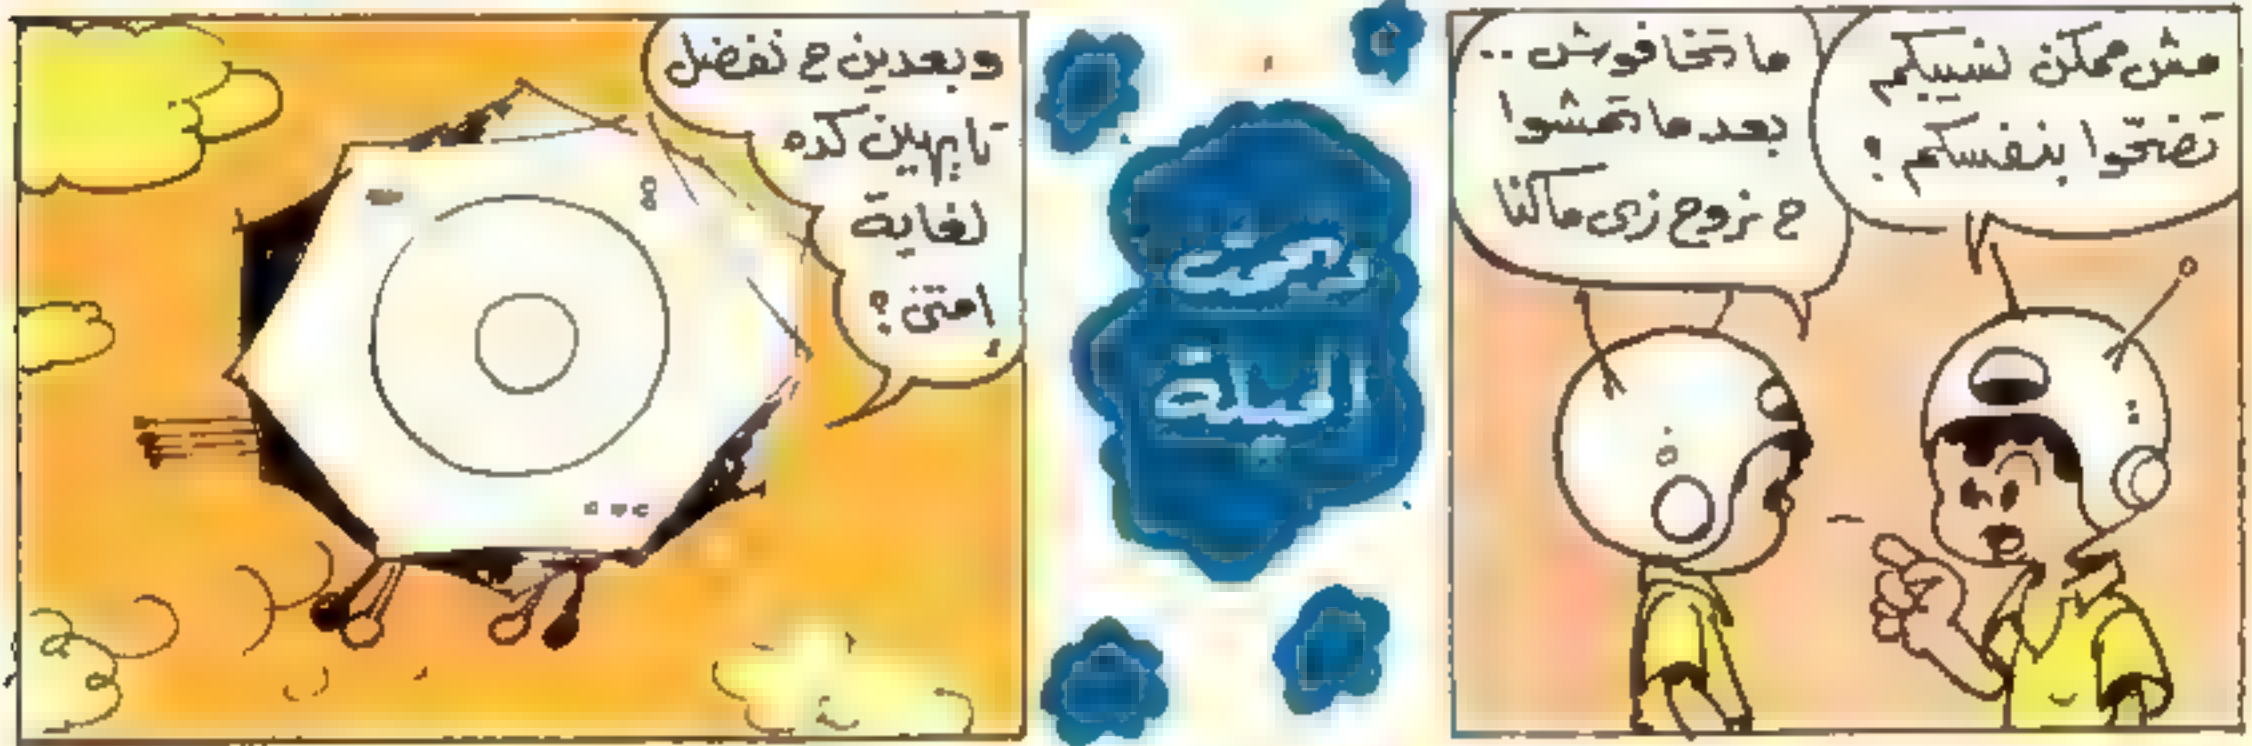 مش ممكن نسيبكم
تضحّوا بنفسكم !
ما تخافوش ..
بعد ما تمشوا
ح نروح زى ما كنا
وبعدين ح نفضل
تايهين كده
لغاية
امتى ؟